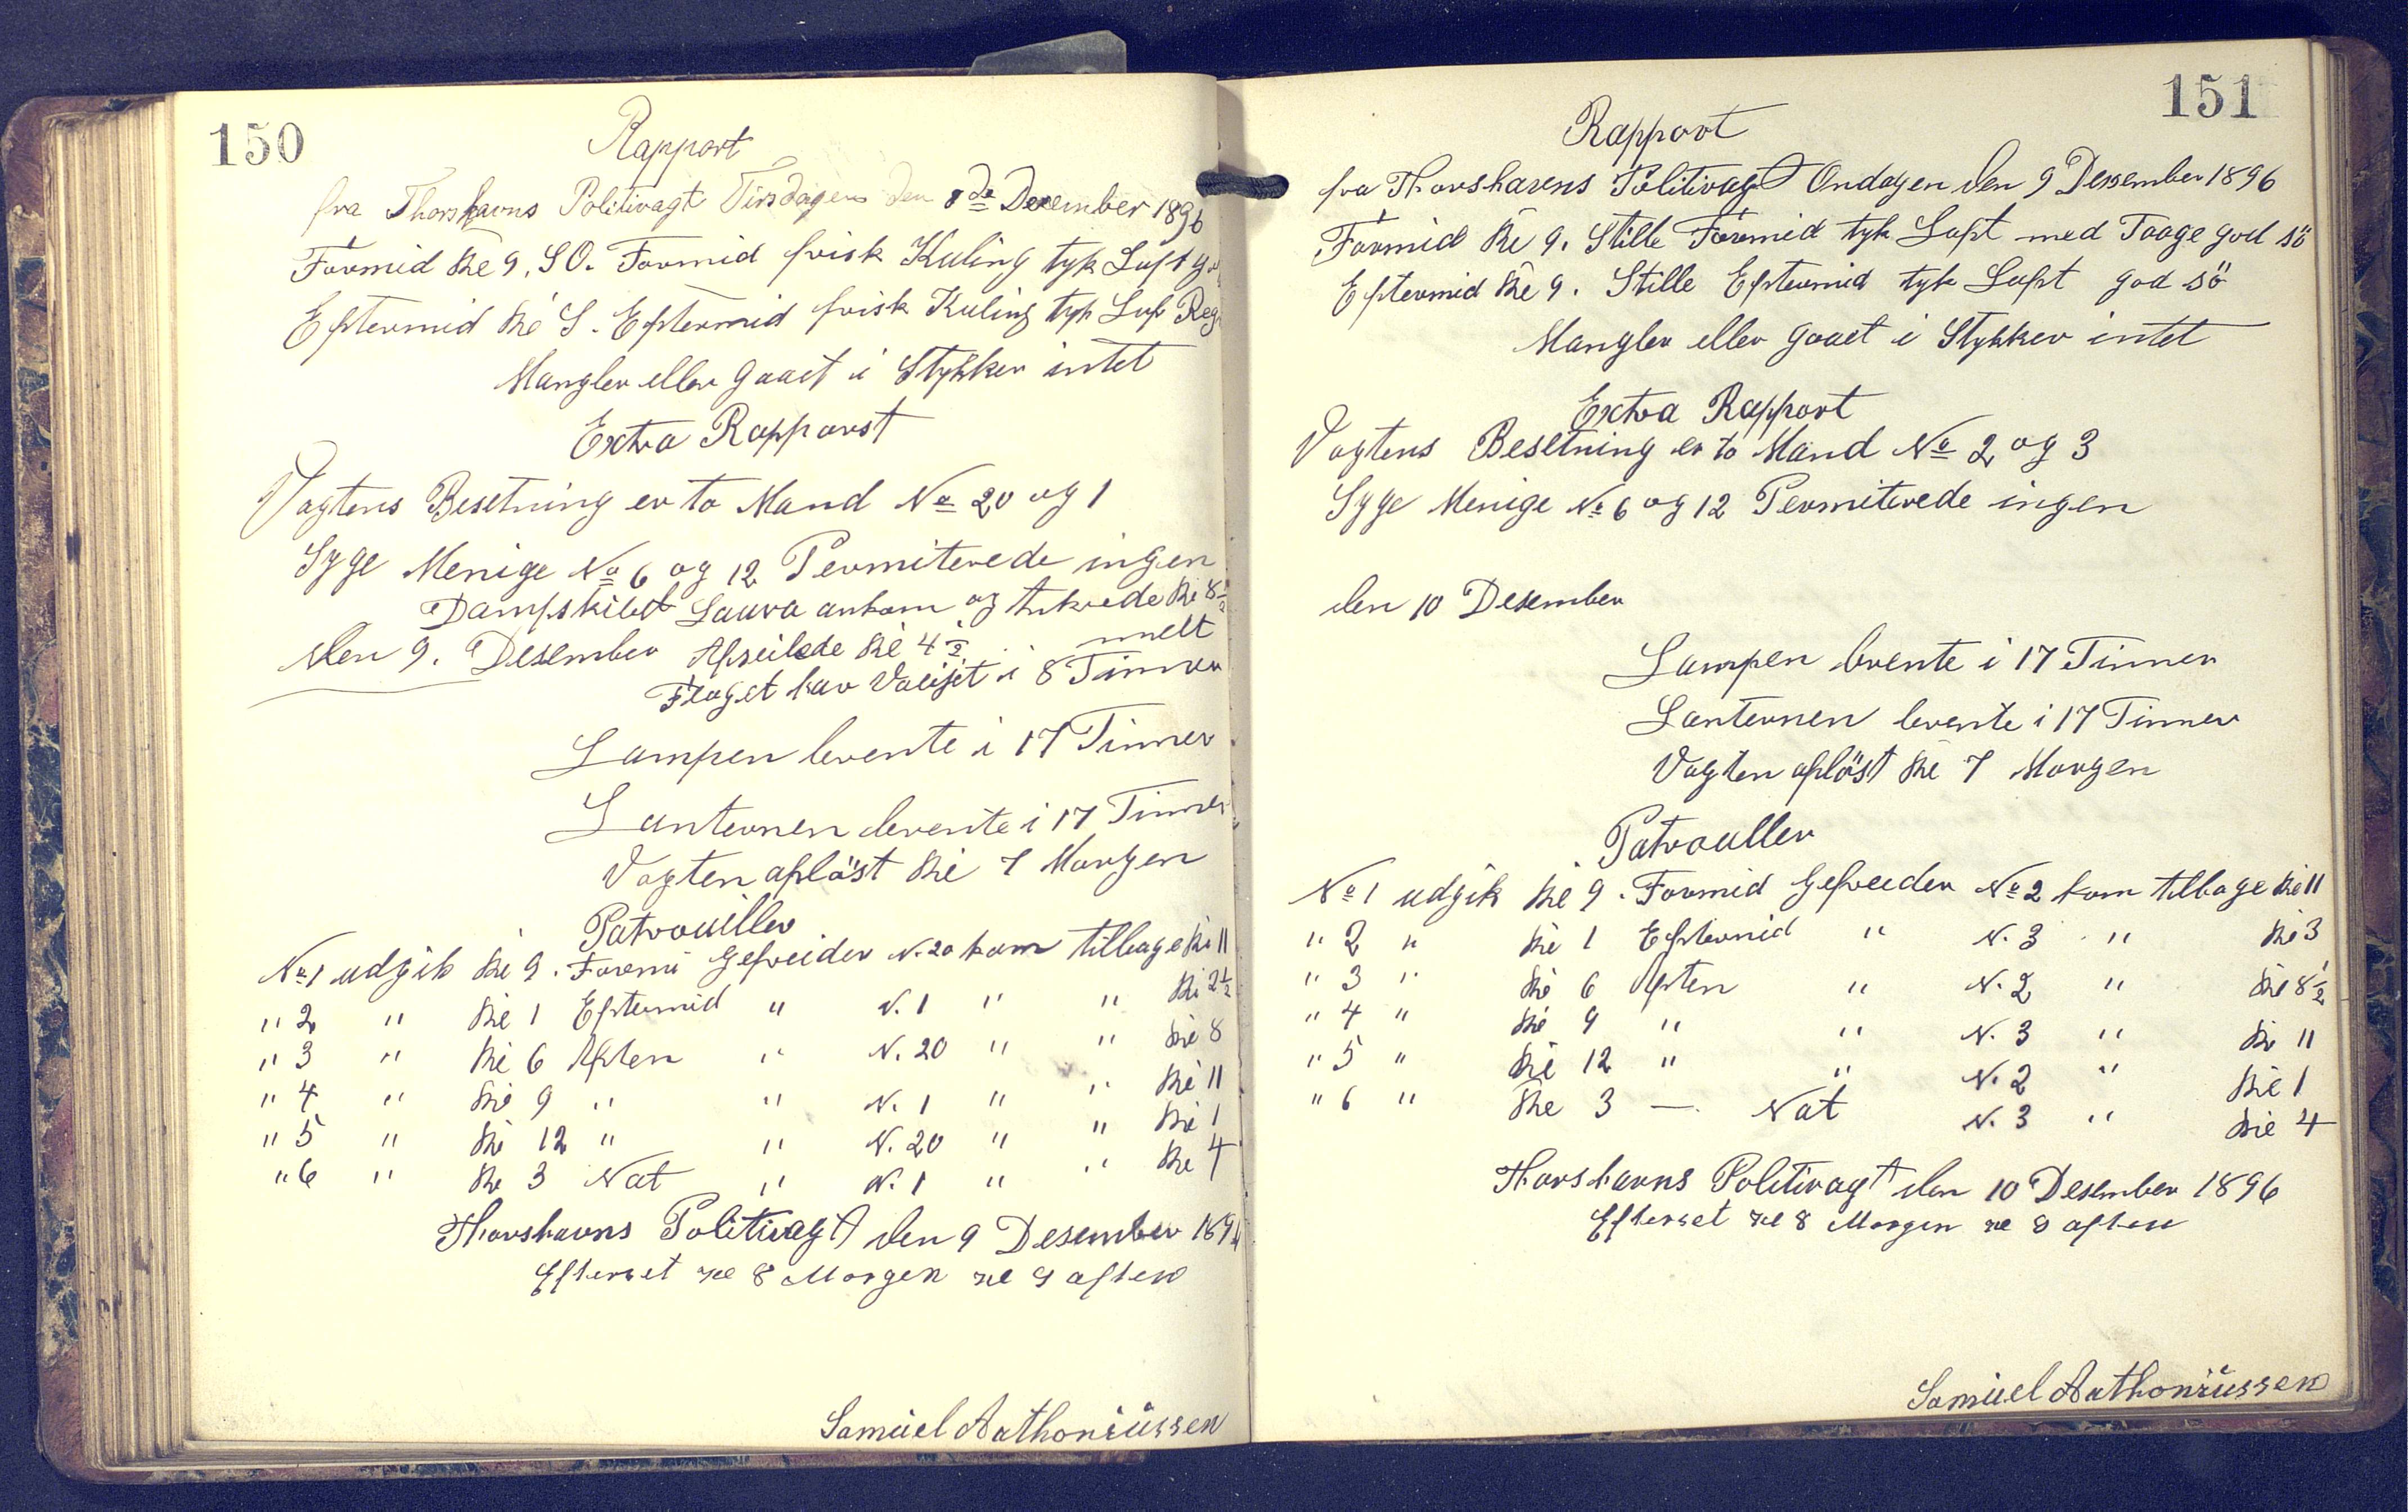 150
Rapport
fra Thorshavns Politivagt Tirsdagen den 8de December 1896
Formid Kl 9. SO. Formid frisk Kuling tyk Luft
Eftermid Kl S. Eftermid frisk Kuling tyk Luf Reg
Mangler eller gaaet i Stykker intet
Extra Rapparst
Vagtens Besetning er to Mand No 20 og 1
Syge Menige No 6 og 12 Permiterede ingen
Dampskibet Laura ankom og Ankrede Kl 8½
den 9. Desember Afseilede Kl 4½
Flaget har Vaijet i 8 Timer
Lampen brente i 17 Timer
Lanternen brente i 17 Timer
Vagten aflöst Kl 7 Morgen
Patrouiller
No 1 udgik Kl 9. Formi Gefreider N. 20 kom tilbage Kl 11
" 2 " Kl 1 Eftermid " N. 1 " " Kl 2½
" 3 " Kl 6 Aften " N. 20 " " Kl 8
" 4 " Kl 9 " " N. 1 " " Kl 11
" 5 " Kl 12 " " N. 20 " " Kl 1
" 6 " Kl 3 Nat " N. 1 " " Kl 4
Thorshavns Politivagt den 9 Desember 1896
Efterset Kl 8 Morgen Kl 9 aften
Samüel Anthoniüssen
151
Rapport
fra Thorshavns Politivagt Ondagen den 9 Desember 1896
Formid Kl 9. Stille Formid tyk Luft med Taage god sö
Eftermid Kl 9. Stille Eftermid tyk Luft god sö
Mangler eller gaaet i Stykker intet
Extra Rapport
Vagtens Besetning er to Mand No 2 og 3
Syge Menige No 6 og 12 Permiterede ingen
den 10 Desember
Lampen brente i 17 Timer
Lanternen brente i 17 Timer
Vagten aflöst Kl 7 Morgen
Patrouller
No 1 udgik Kl 9. Formid Gefreider No 2 kom tilbage Kl 11
" 2 " Kl 1 Eftermid " N. 3 " Kl 3
" 3 " Kl 6 Aften " N. 2 " Kl 8½
" 4 " Kl 9 " " N. 3 " Kl 11
" 5 " Kl 12 " " N. 2 " Kl 1
" 6 " Kl 3 — Nat N. 3 " Kl 4
Thorshavns Politivagt den 10 Desember 1896
Efterset Kl 8 Morgen Kl 9 aften
Samüel Anthoniüssen